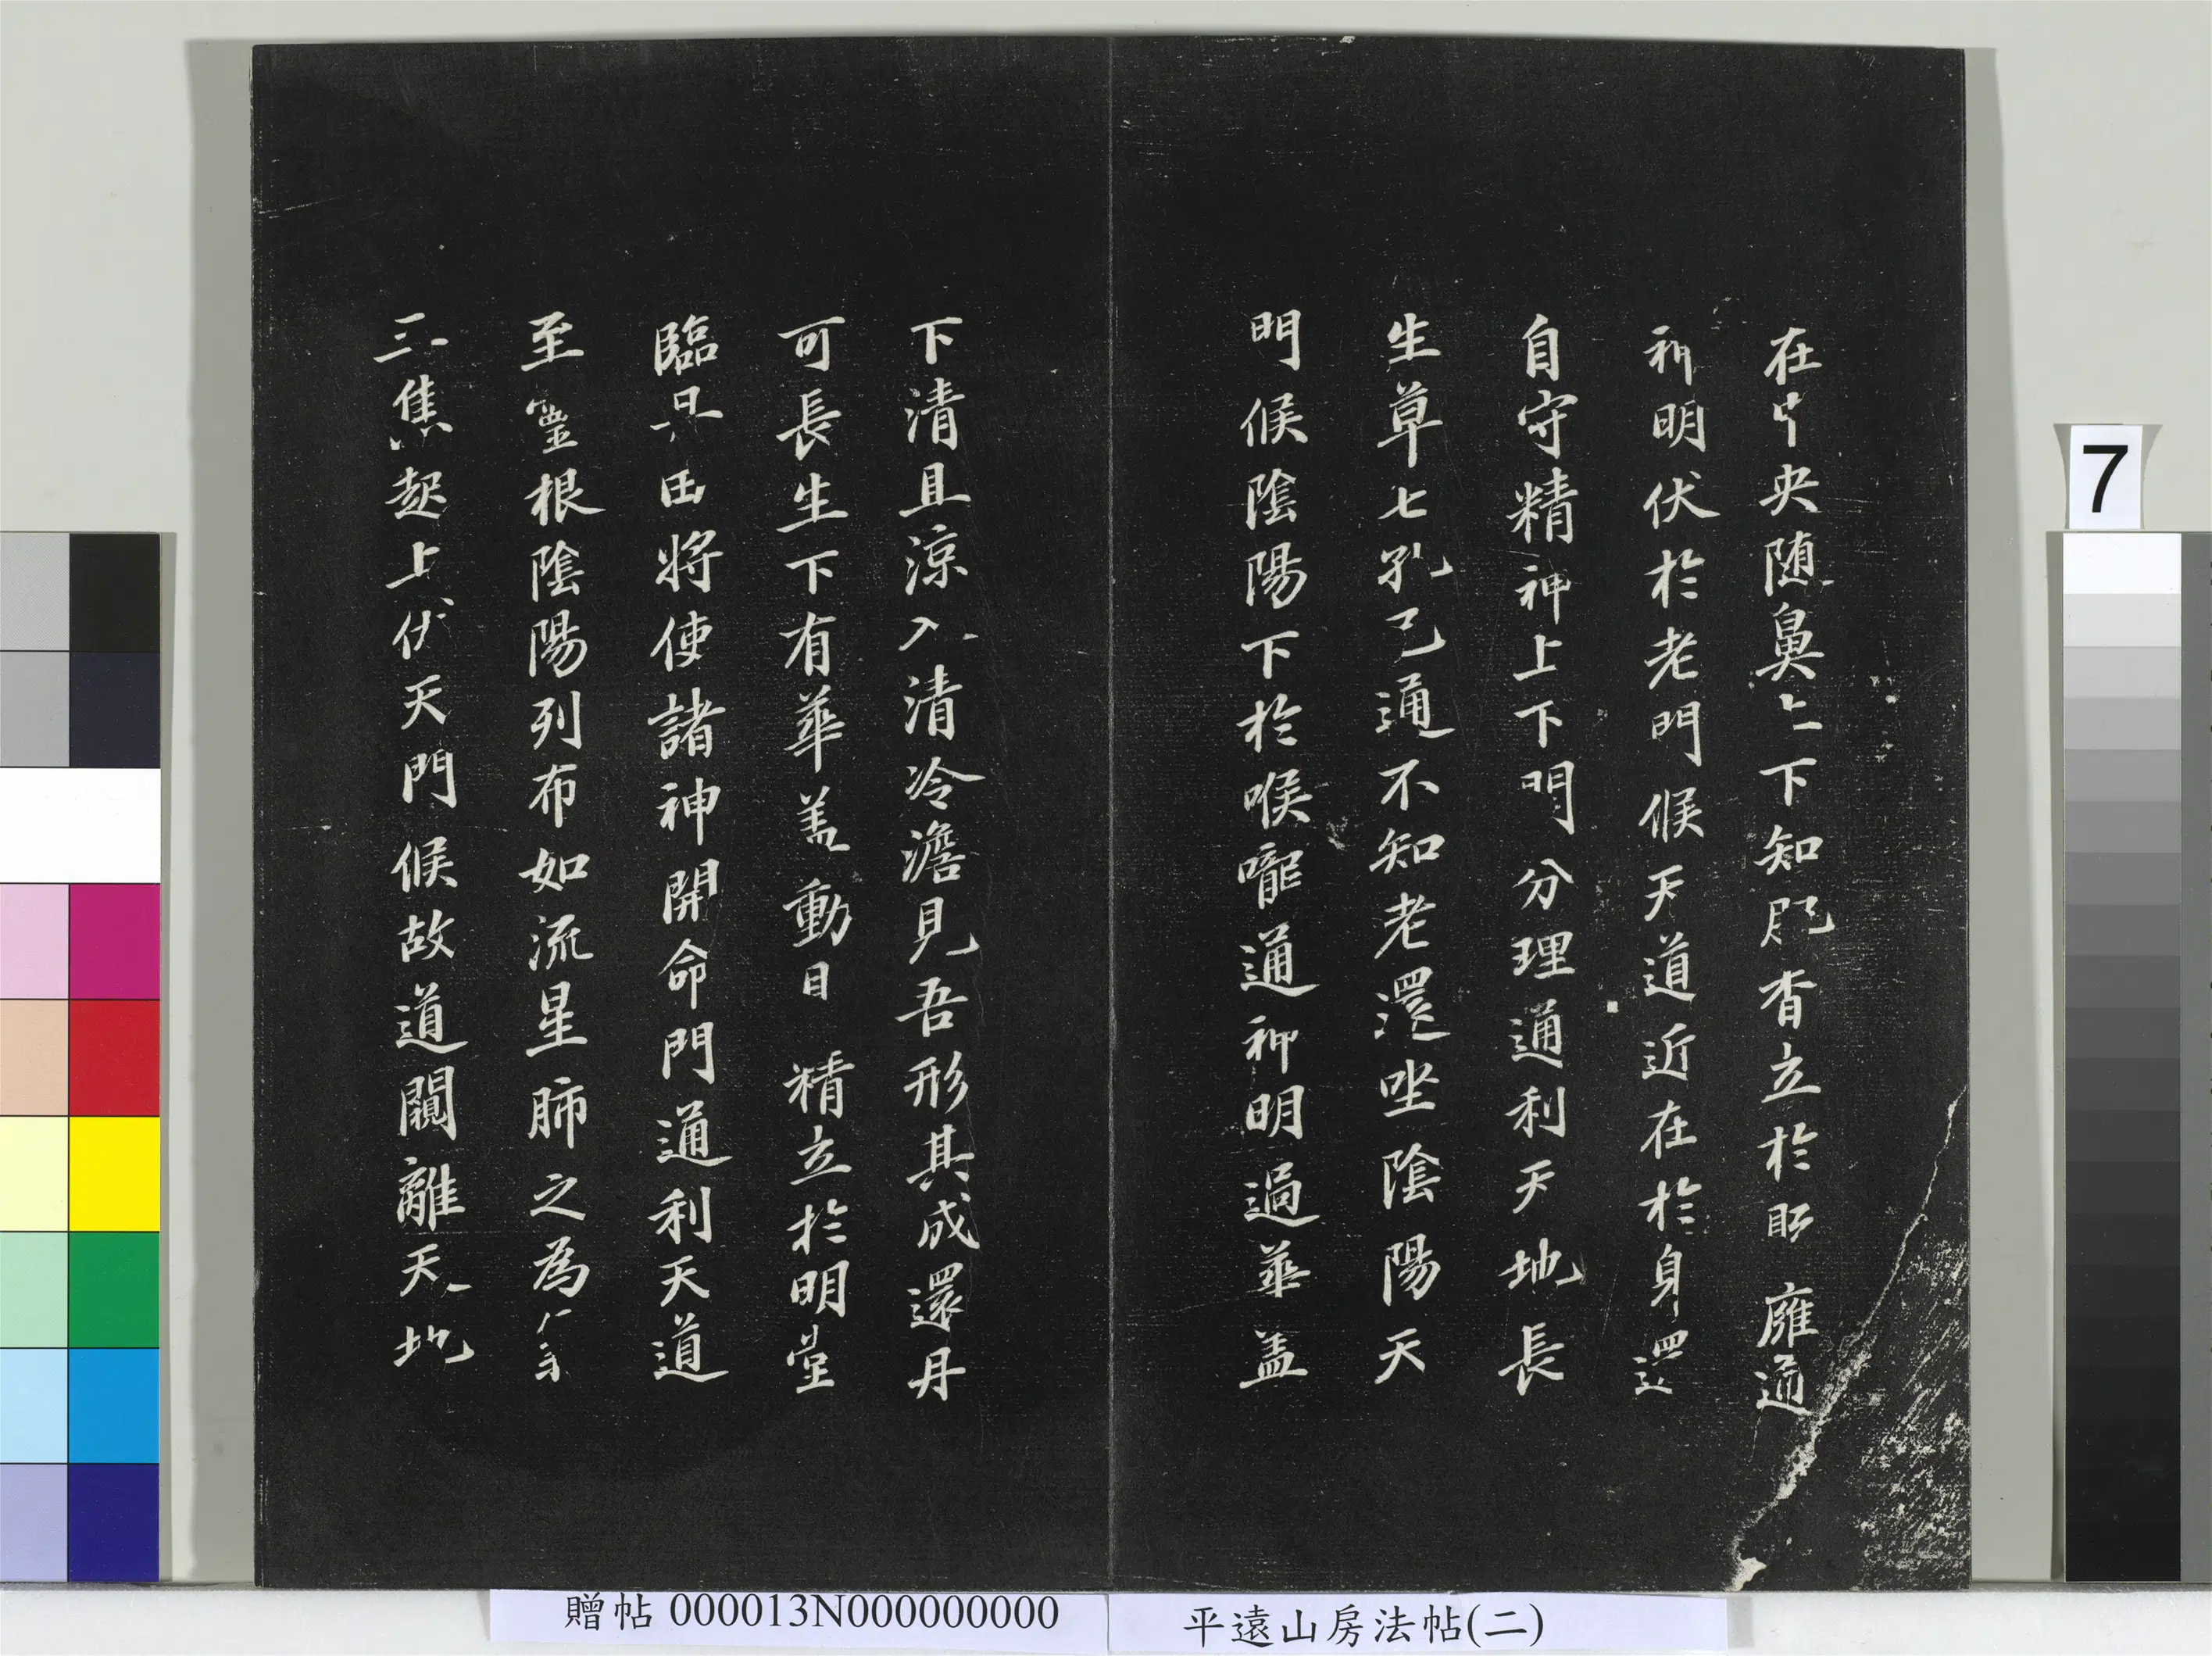 在中央随鼻上下知肥香立於
雍通
神明伏於老門候天道近在於身還
自守精神上下門分理通利天地長
生草七孔已通不知老還坐陰陽天
門候陰陽下於喉嚨通神明過華盖
下清且涼入清冷澹見吾形其成還丹
可長生下有華盖動目精立於明堂
臨丹田將使諸神開命門通利天道
至靈根陰陽列布如流星肺之為氣
三焦起上伏天門候故道闚離天地
7
贈帖 000013N000000000
平遠山房法帖(二)